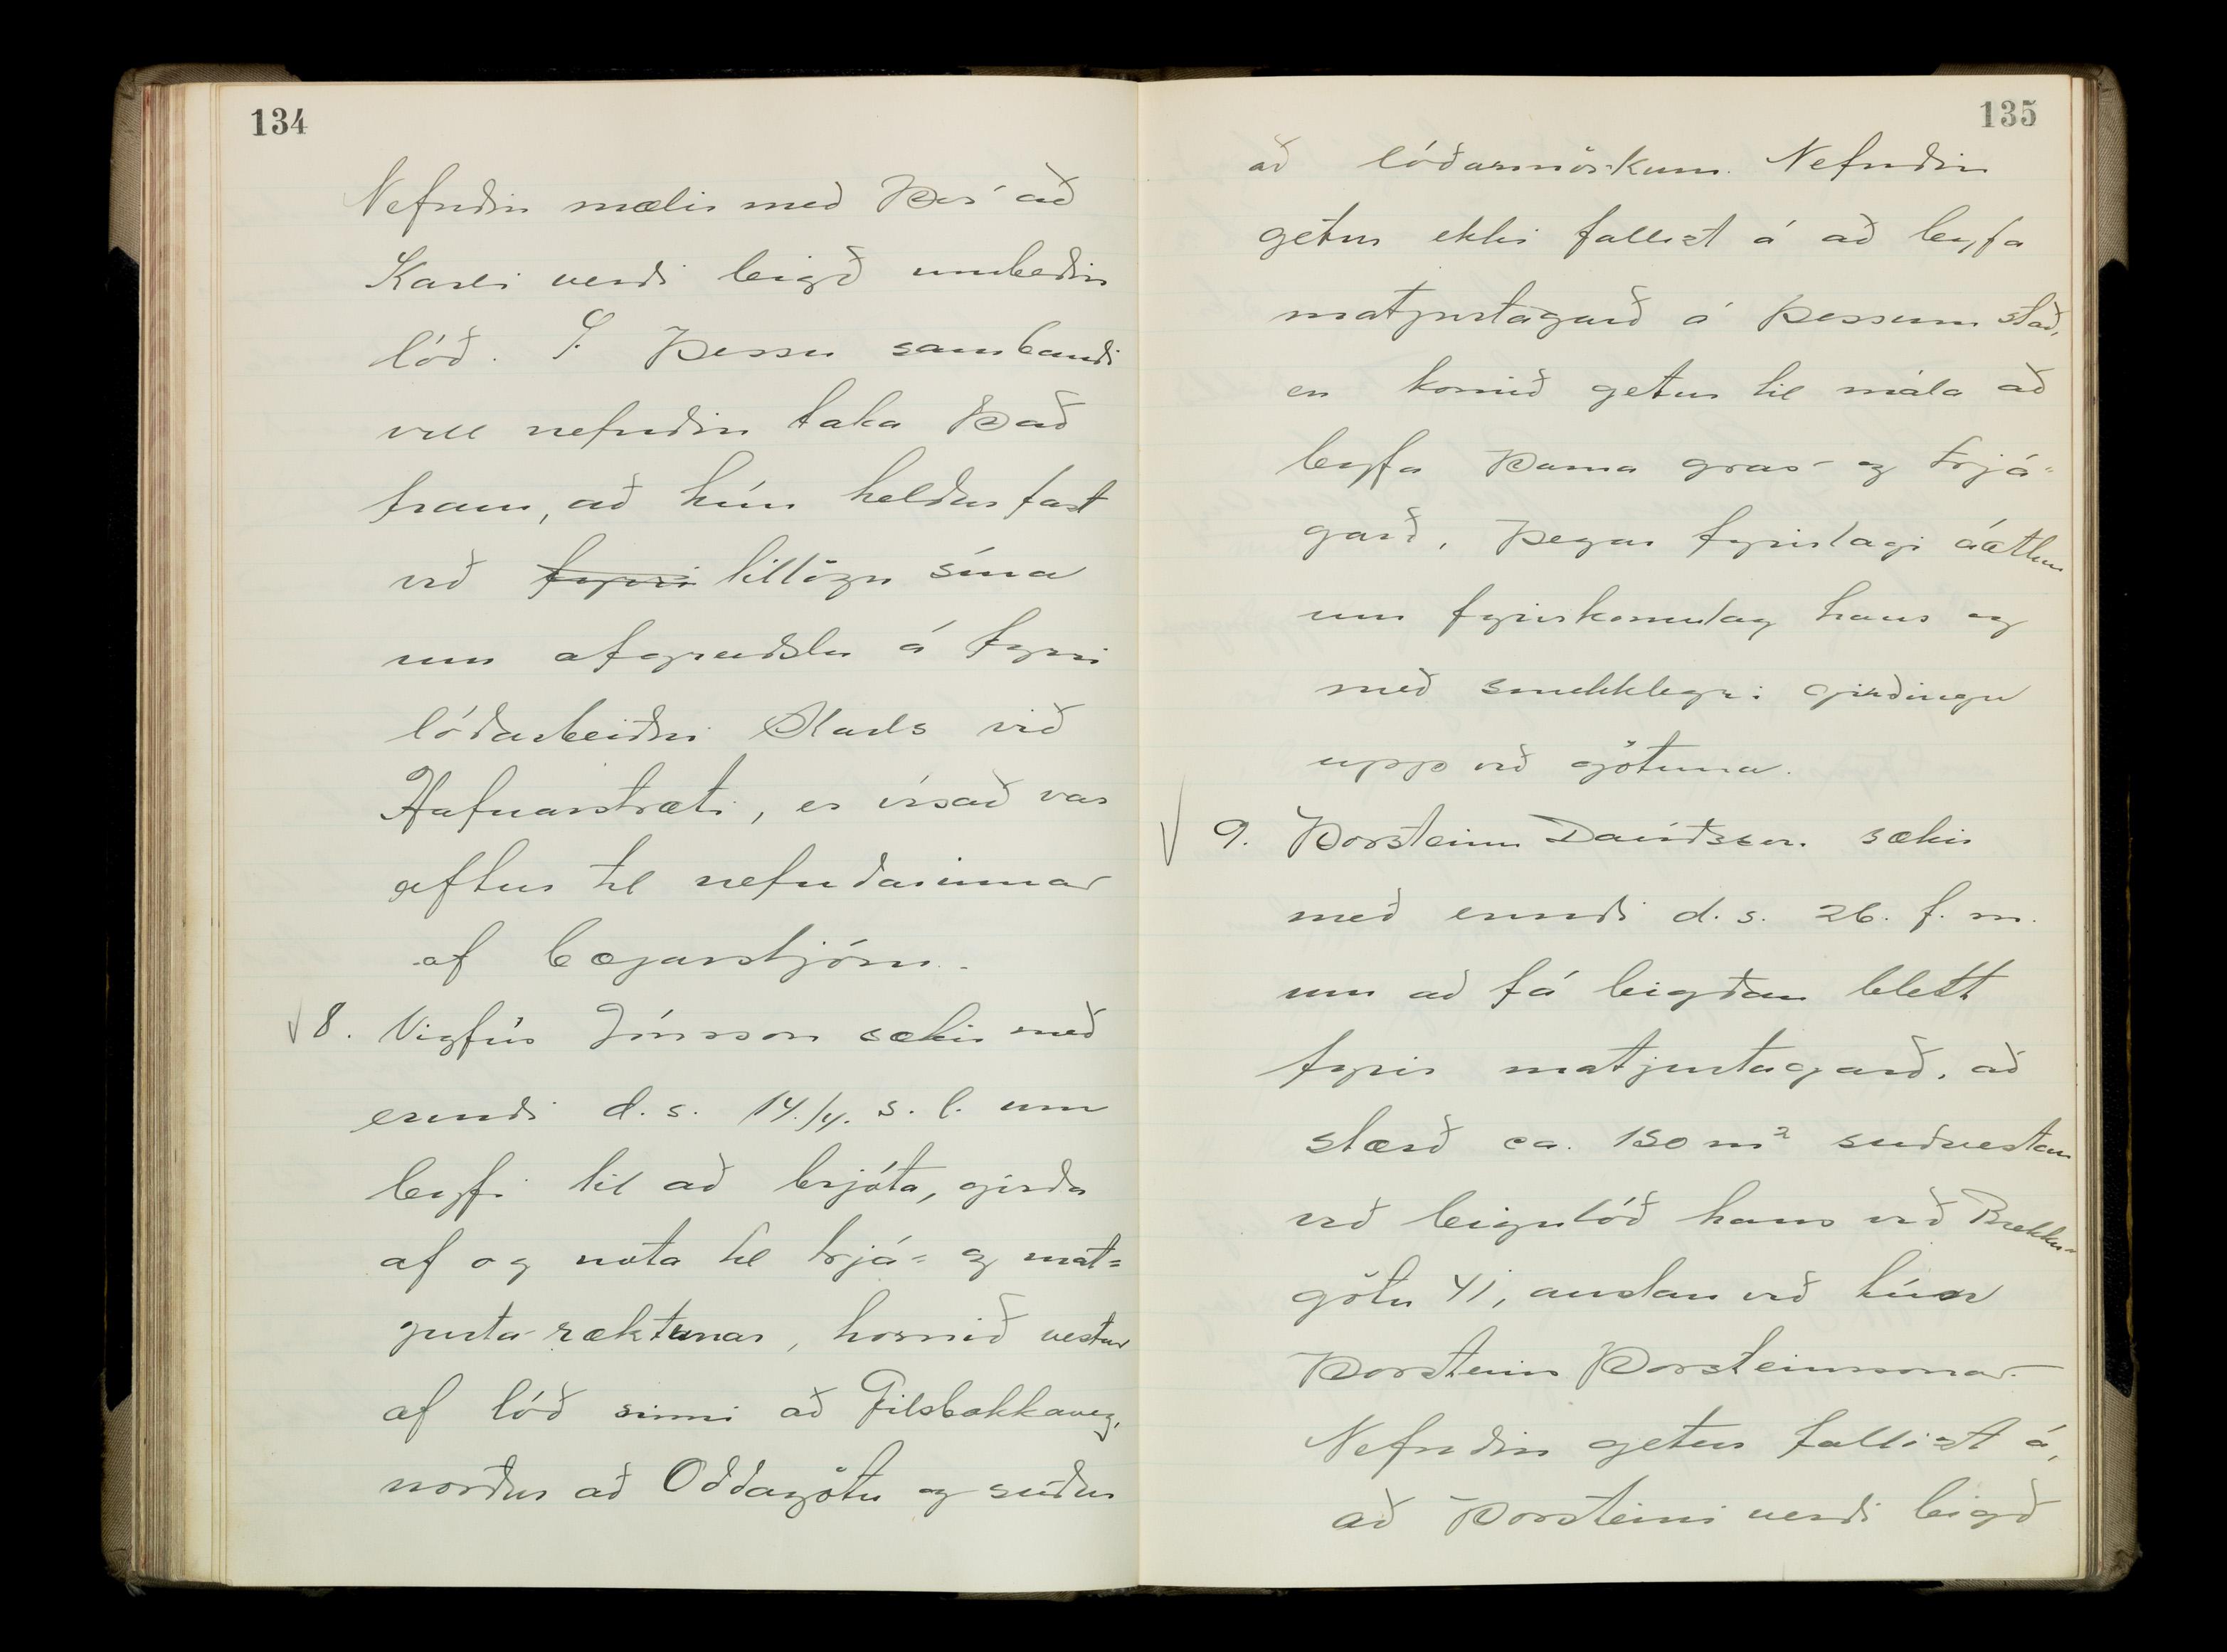 134
Nefndin mælir með því að
Karli verði leigð umbeðin
lóð. Í þessu sambandi
vill nefndin taka það
fram, að hún heldur fast
við fyrri tillögu sína
um afgreiðslu á fyrri
lóðarbeiðni Karls við
Hafnarstræti, er vísað var
aftur til nefndarinnar
af bæjarstjórn.
8. Vigfús Jónsson sækir með
erindi d.s. 14./4. s.l. um
leyfi til að brjóta, girða
af og nota til trjá- og mat=
jurta-ræktunar, hornið vestur
af lóð sinni að Gilsbakkaveg,
norður að Oddagötu og suður
135
að lóðarmörkum. Nefndin
getur ekki fallist á að leyfa
matjurtagarð á þessum stað,
en komið getur til mála að
leyfa þarna gras- og trjá-
garð, þegar fyrirlægi áætlun
um fyrirkomulag hans og
með smekklegri girðingu
upp við götuna.
9. Þorsteinn Davíðsson sækir
með erindi d.s. 26. f.m.
um að fá leigðan blett
fyrir matjurtagarð, að
stærð ca. 150 m² suðvestan
við leigulóð hans við Brekku-
götu 41, austan við tún
Þorsteins Þorsteinssonar.
Nefndin getur fallist á,
að Þorsteini verði leigð